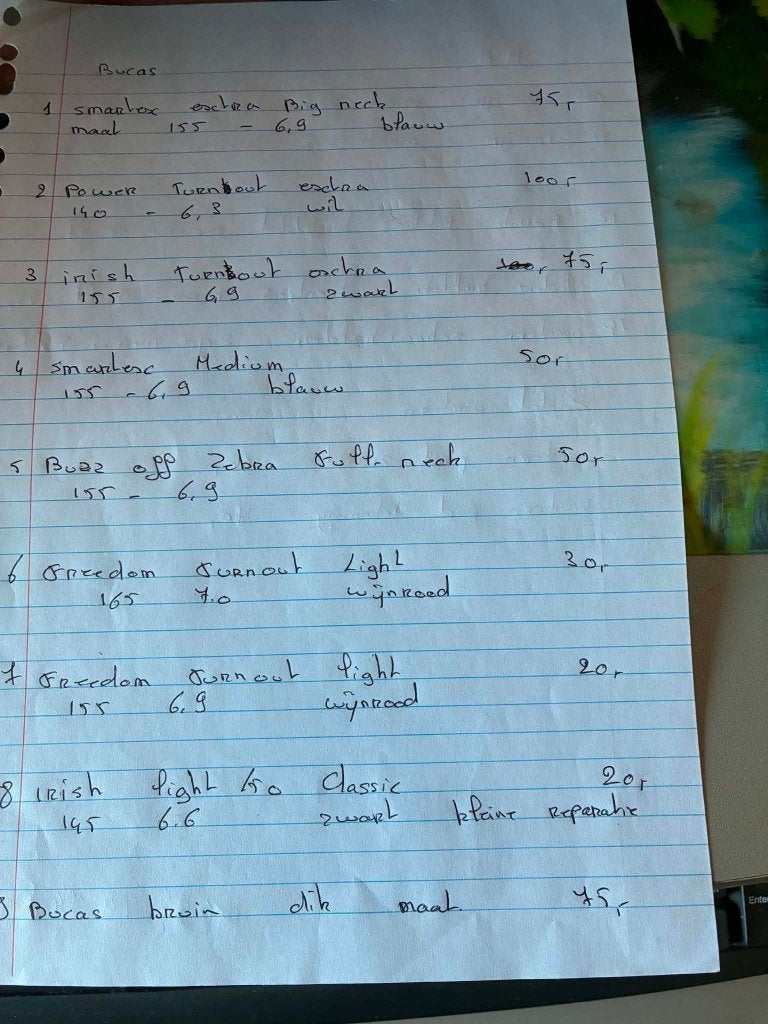 Bucas
1 smartex exctra Big neck 75,-
maat 155 - 6,9 blauw
2 Power Turnout exctra 100,-
140 - 6,3 wit
3 irish Turnout exctra 75,-
155 - 6,9 zwart
4 smartex Medium 50,-
155 - 6,9 blauw
5 Buzz off Zebra full neck 50,-
155 - 6,9
6 Freedom turnout Light 30,-
165 7.0 wijnrood
7 Freedom turnout light 20,-
155 6,9 wijnrood
8 irish light 150 Classic 20,-
145 6.6 zwart kleine reparatie
9 Bucas bruin dik maat 75,-
Enter